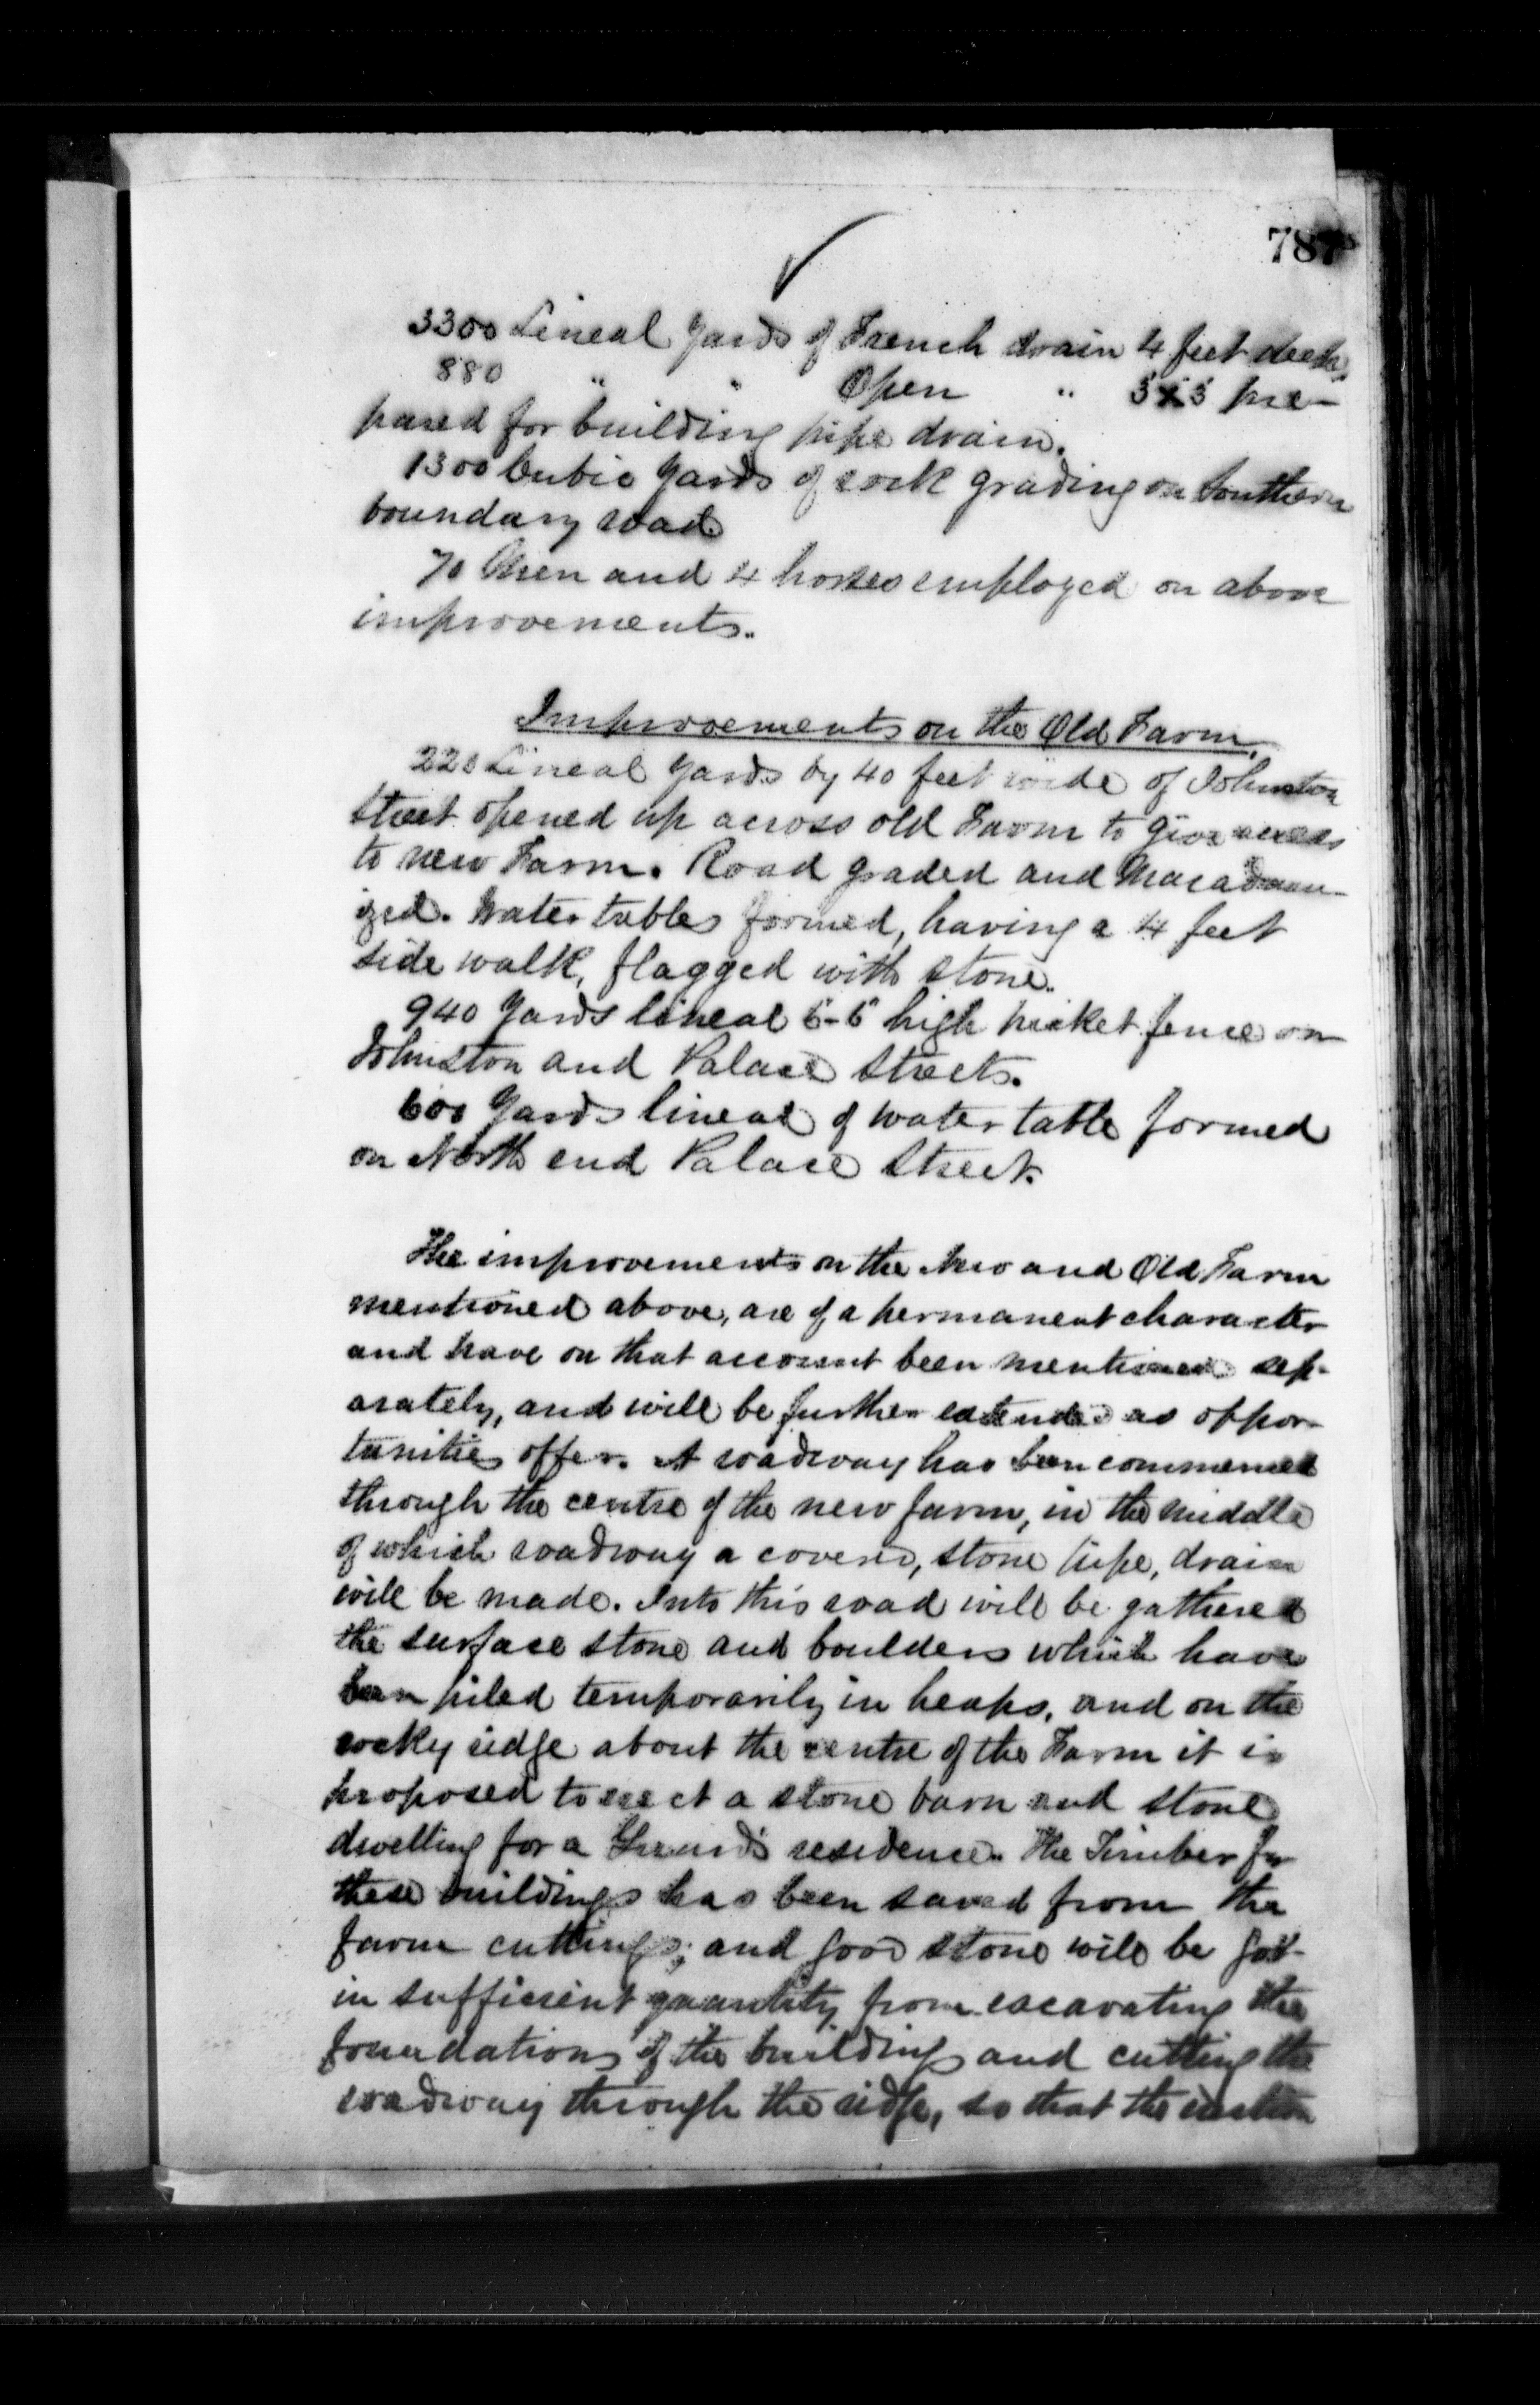 787
3300 Lineal Yards of French drain 4 feet deep.
880 " " Open " 3x3 pre-
pared for building pipe drain.
1300 Cubic Yards of rock grading on Southern
boundary road
70 Men and 4 horses employed on above
improvements.
Improvements on the Old Farm.
220 Lineal Yards by 40 feet wide of Johnston
Street opened up across old Farm to give access
to new Farm. Road graded and Macadam-
ized. Water tables formed, having a 4 feet
side walk, flagged with stone.
940 Yards lineal 6-6 high picket fence on
Johnston and Palace Streets.
600 Yards lineal of water table formed
on North end Palace Street.
The improvements on the New and Old Farm
mentioned above, are of a permanent character
and have on that account been mentioned sep-
arately, and will be further extended as oppor-
tunities offer. A roadway has been commenced
through the centre of the new farm, in the middle
of which roadway a covered, stone pipe, drain
will be made. Into this road will be gathered
the surface stone and boulders which have
been piled temporarily in heaps, and on the
rocky ridge about the centre of the Farm it is
proposed to erect a stone barn and stone
dwelling for a Guard's residence. The Timber for
these buildings has been saved from the
farm cuttings; and good stone will be got
in sufficient quantity from excavating the
foundations of the buildings and cutting the
roadway through the ridge, so that the